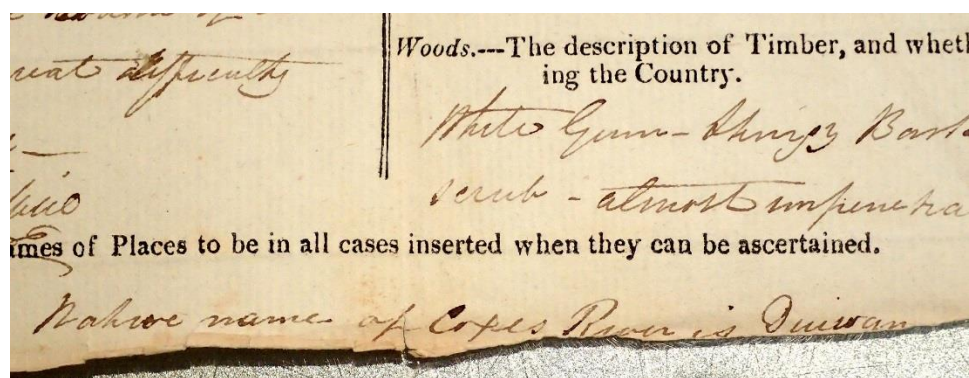 reat difficulty
Woods.---The description of Timber, and wheth
ing the Country.
White Gum - Stringy Bark
scrub - almost impenetra
ames of Places to be in all cases inserted when they can be ascertained.
Native name of Coxes River is